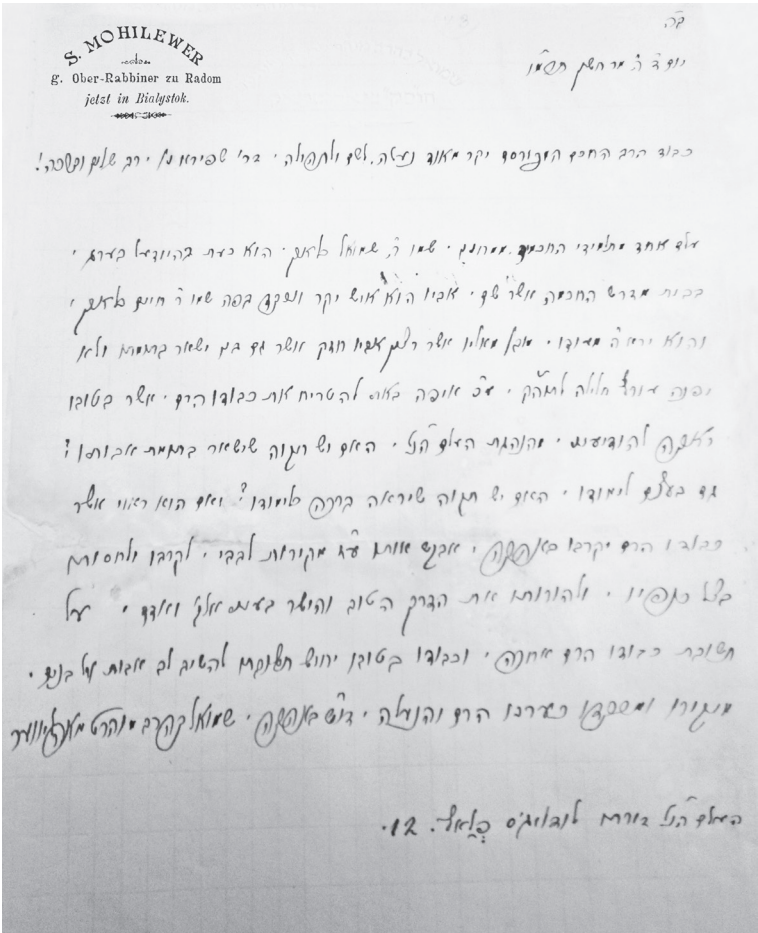 S. MOHILEWER
g. Ober-Rabbiner zu Radom
jetzt in Bialystok.
ב"ה
יום ה' מר חשון תרמ"ו
כבוד הרב החכם המפורסם יקר מאוד נעלה, לשם ולתהלה. ברי שפירא נ"י. רב שלום וברכה!
עלם אחד מתלמידי החכמים. שמו ר' שמואל. הוא כעת בהיידעלבערג.
בבית מדרש החכמה אשר שם. אביו הוא איש יקר ונכבד בפה שמו ר' חיים
והוא ירא ה' מנעוריו. מובן מאליו אשר רצון אביו חזק אשר גם בנו ישאר בתמתו ולא
יפנה עורף חלילה. ע"כ אויפה באתי להטריח את כבודו הרם. אשר בטובו
להודיעני. מהנהגת העלם הנ"ל. האם יש תקוה שישאר בתמת אבותיו?
גם בענין לימודו. האם יש תקוה שיראה ברכה בלימודו? ואם הוא ראוי אשר
כבודו הרם יקרבו באהבה. אבקש אותו ע"ז מקירות לבבי. לקרבו ולחסותו
בצל כנפיו. ולהורותו את הדרך הטוב והישר בעיני אל' ואדם. על
תשובת כבודו הרם אחכה. וכבודו בטובו יחיש תשובתו להשיב לב אבות על בנים.
מוקירו ומכבדו כערכו הרם והנעלה. דו"ש באהבה. שמואל מאהליווער
העלם הנ"ל דירתו פלאץ. 12.